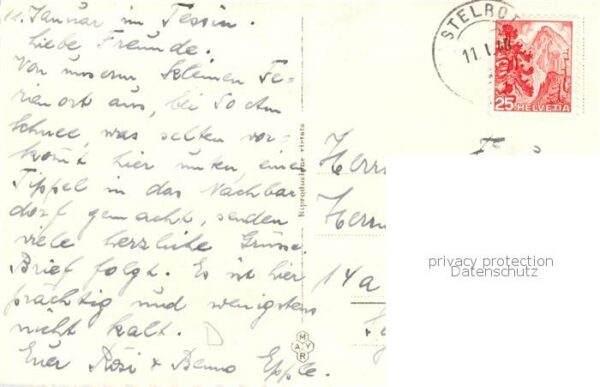 11. Januar im Tessin.
Liebe Freunde.
Von unserm kleinen Fe-
rienort aus, bei 50 cm
Schnee, was selten vor-
kommt hier unten, einen
Tippel in das Nachbar
dorf gemacht, senden
viele herzliche Grüsse.
Brief folgt. Es ist hier
prächtig und wenigstens
nicht kalt.
Euer Rösi + Benno Epple.
Riproduzione vietata
MAYR
STELRO
11.I.
25 HELVETIA
Herrn
Herrn
14a
privacy protection
Datenschutz